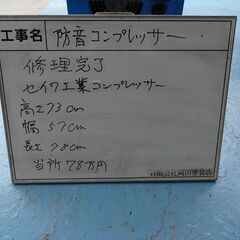 工事名 防音コンプレッサー
修理完了
セイワ工業コンプレッサー
高さ73cm
幅57cm
長さ78cm
当所78万円
有限会社岡田塗装店